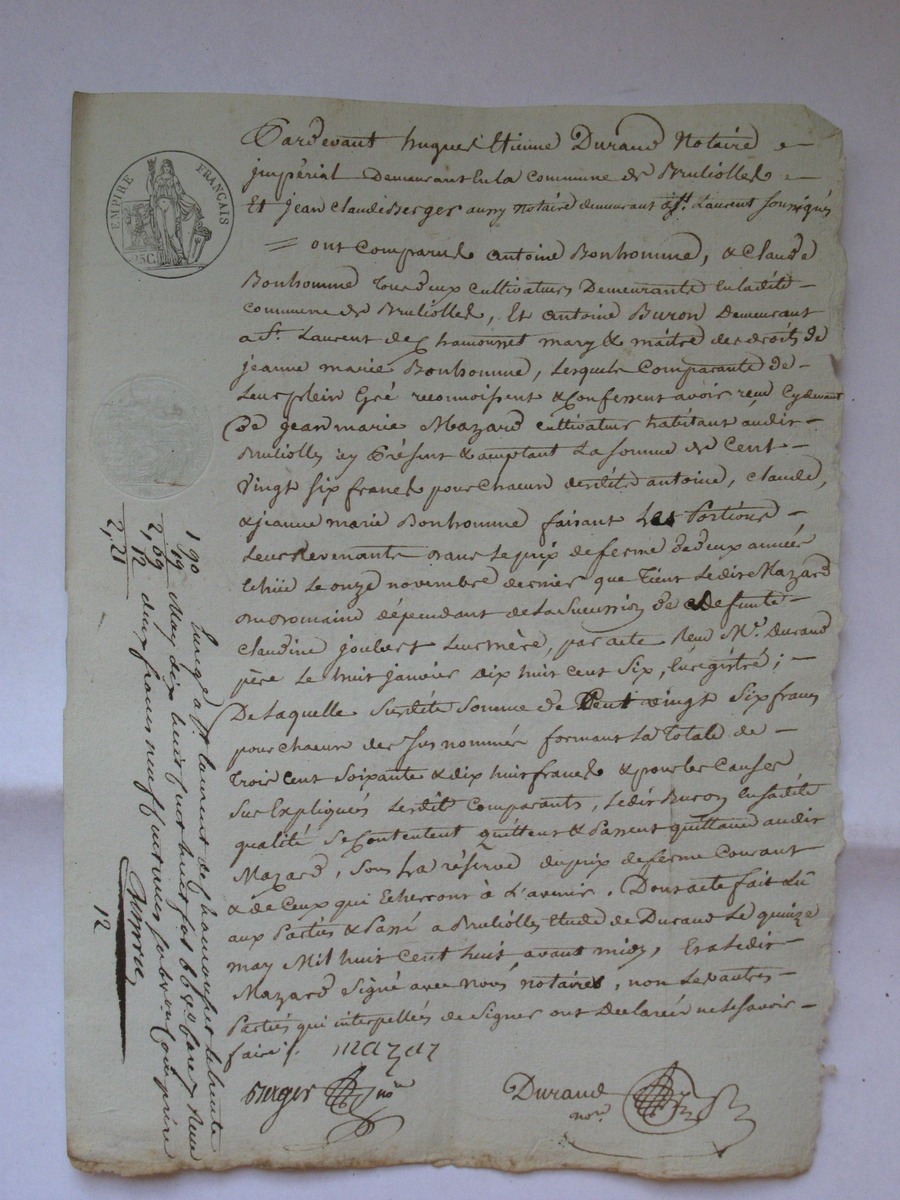 EMPIRE FRANÇAIS
25C
Pardevant hugues Etienne Durand Notaire
jmpérial Demeurant En la commune de Brulliolles
Et jean Claude Berger aussy notaire demeurant à St. Laurent soussignés
= ont comparus antoine Bonhomme, & claude
Bonhomme tous deux cultivateurs Demeurants en ladite
commune de Brulliolles, Et antoine Buron Demeurant
a St. Laurent de Chamousset mary & maître des droits de
jeanne marie Bonhomme, Lesquels Comparants de
Leur plein Gré reconnoissent & Confessent avoir reçu Cydevant
De jean marie Mazard cultivateur habitant audit
Brulliolles icy Présent & acceptant La somme de Cent
vingt six francs pour chacun desdits antoine, claude,
& jeanne marie Bonhomme faisant Les Portions
Leurs Revenants dans Le prix de ferme de deux années
échüe Le onze novembre dernier que tient Ledit Mazard
du domaine dépendant de La Succession de defunte
claudine joubert Leur mère, par acte reçu Me. Durand
père Le huit janvier dix huit cent six, Enregistré;
De Laquelle Susdite Somme de Cent vingt Six francs
pour chacun des sus nommés formant La Totale de
Trois Cent Soixante & dix huit francs & pour les Causes
Sus Expliquées Lesdits Comparants, Ledit Buron En sadite
qualité Se Contentent quittent & Passent quittance audit
Mazard, Sous La réserve du prix de ferme Courant
& de Ceux qui Echerront à L'avenir. Dont acte fait Lû
aux Parties & Passé a Brulliolles Etude de Durand Le quinze
may Mil huit Cent huit, avant midy, Et a Ledit
Mazard Signé avec Nous notaires, non Les autres
Parties qui interpellées de Signer ont Déclarés ne le Savoir
faire /.
mazar
Berger nre
Durand
nore
1, 90
19
2, 09
12
2, 21
Enregé a St. laurent de chamousset le trente
May dix huit cent huit fos 69 Vo Case 7 Reçu
deux francs neuf centimes subvention comprise
12